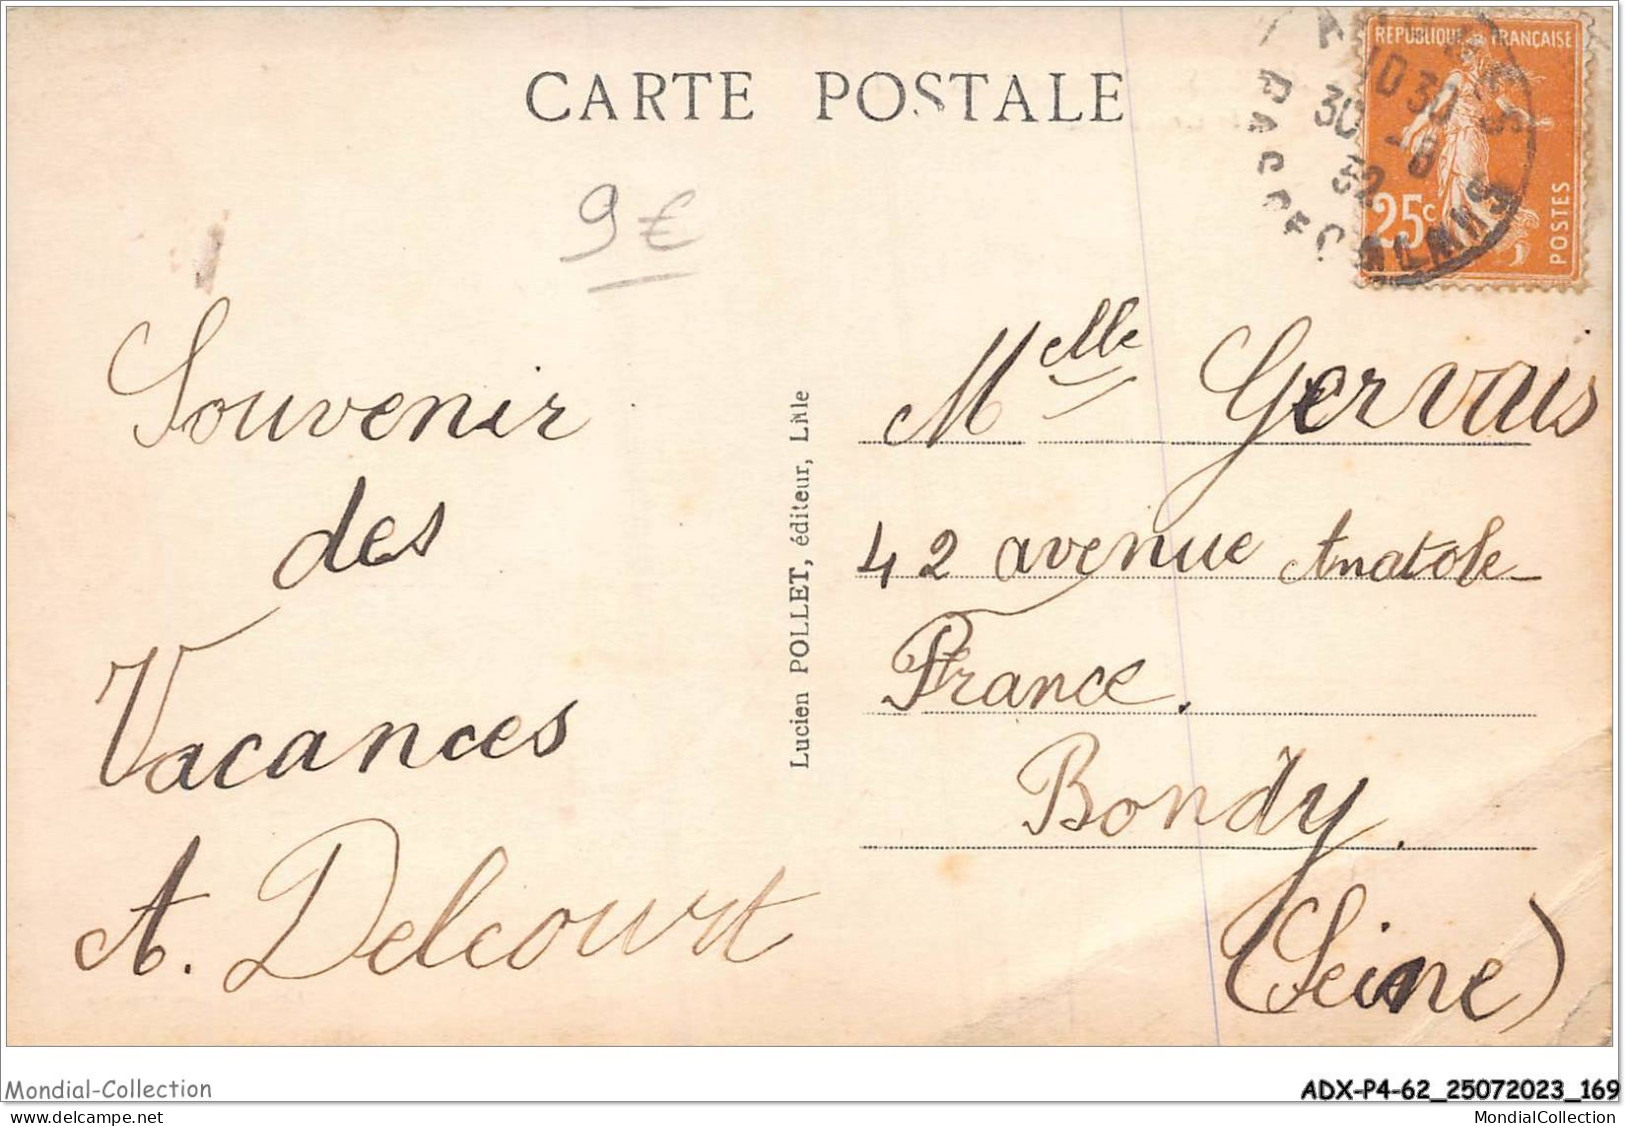 CARTE POSTALE
REPUBLIQUE FRANÇAISE
25c
POSTES
10 30
30 -8
32
9 €
Souvenir
des
Vacances
A. Delcourt
Lucien POLLET, éditeur, Lille
Melle Gervais
42 avenue Anatole
France.
Bondy.
(Seine)
Mondial-Collection
ADX-P4-62_25072023_169
www.delcampe.net
MondialCollection